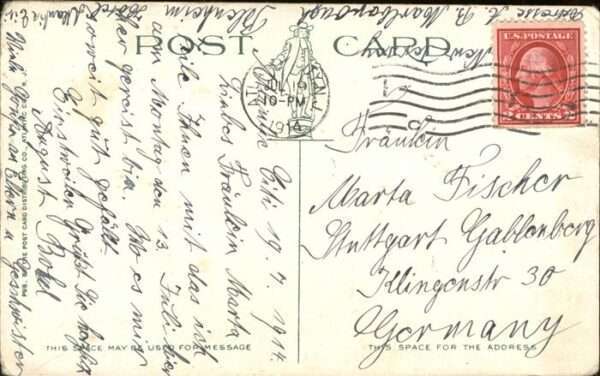 POST CARD
U.S. POSTAGE
2 CENTS 2
JUL 19
70-PM
1914
Atlantic Citi 19. 7. 1914.
Liebes Fräulein Marta
teile Ihnen mit das ich
am Montag den 13. Juli hier
her gereist bin. Wo es mir
soweit gut gefällt.
Einstweilen Grüßt Sie
August
Eltern u Geschwister
Adresse
Marlborough
Blenheim
Hotel
Fräulein
Marta Fischer
Stuttgart Gablenberg
Klingenstr 30
Germany
POST CARD DISTRIBUTING CO.
THIS SPACE MAY BE USED FOR MESSAGE
THIS SPACE FOR THE ADDRESS